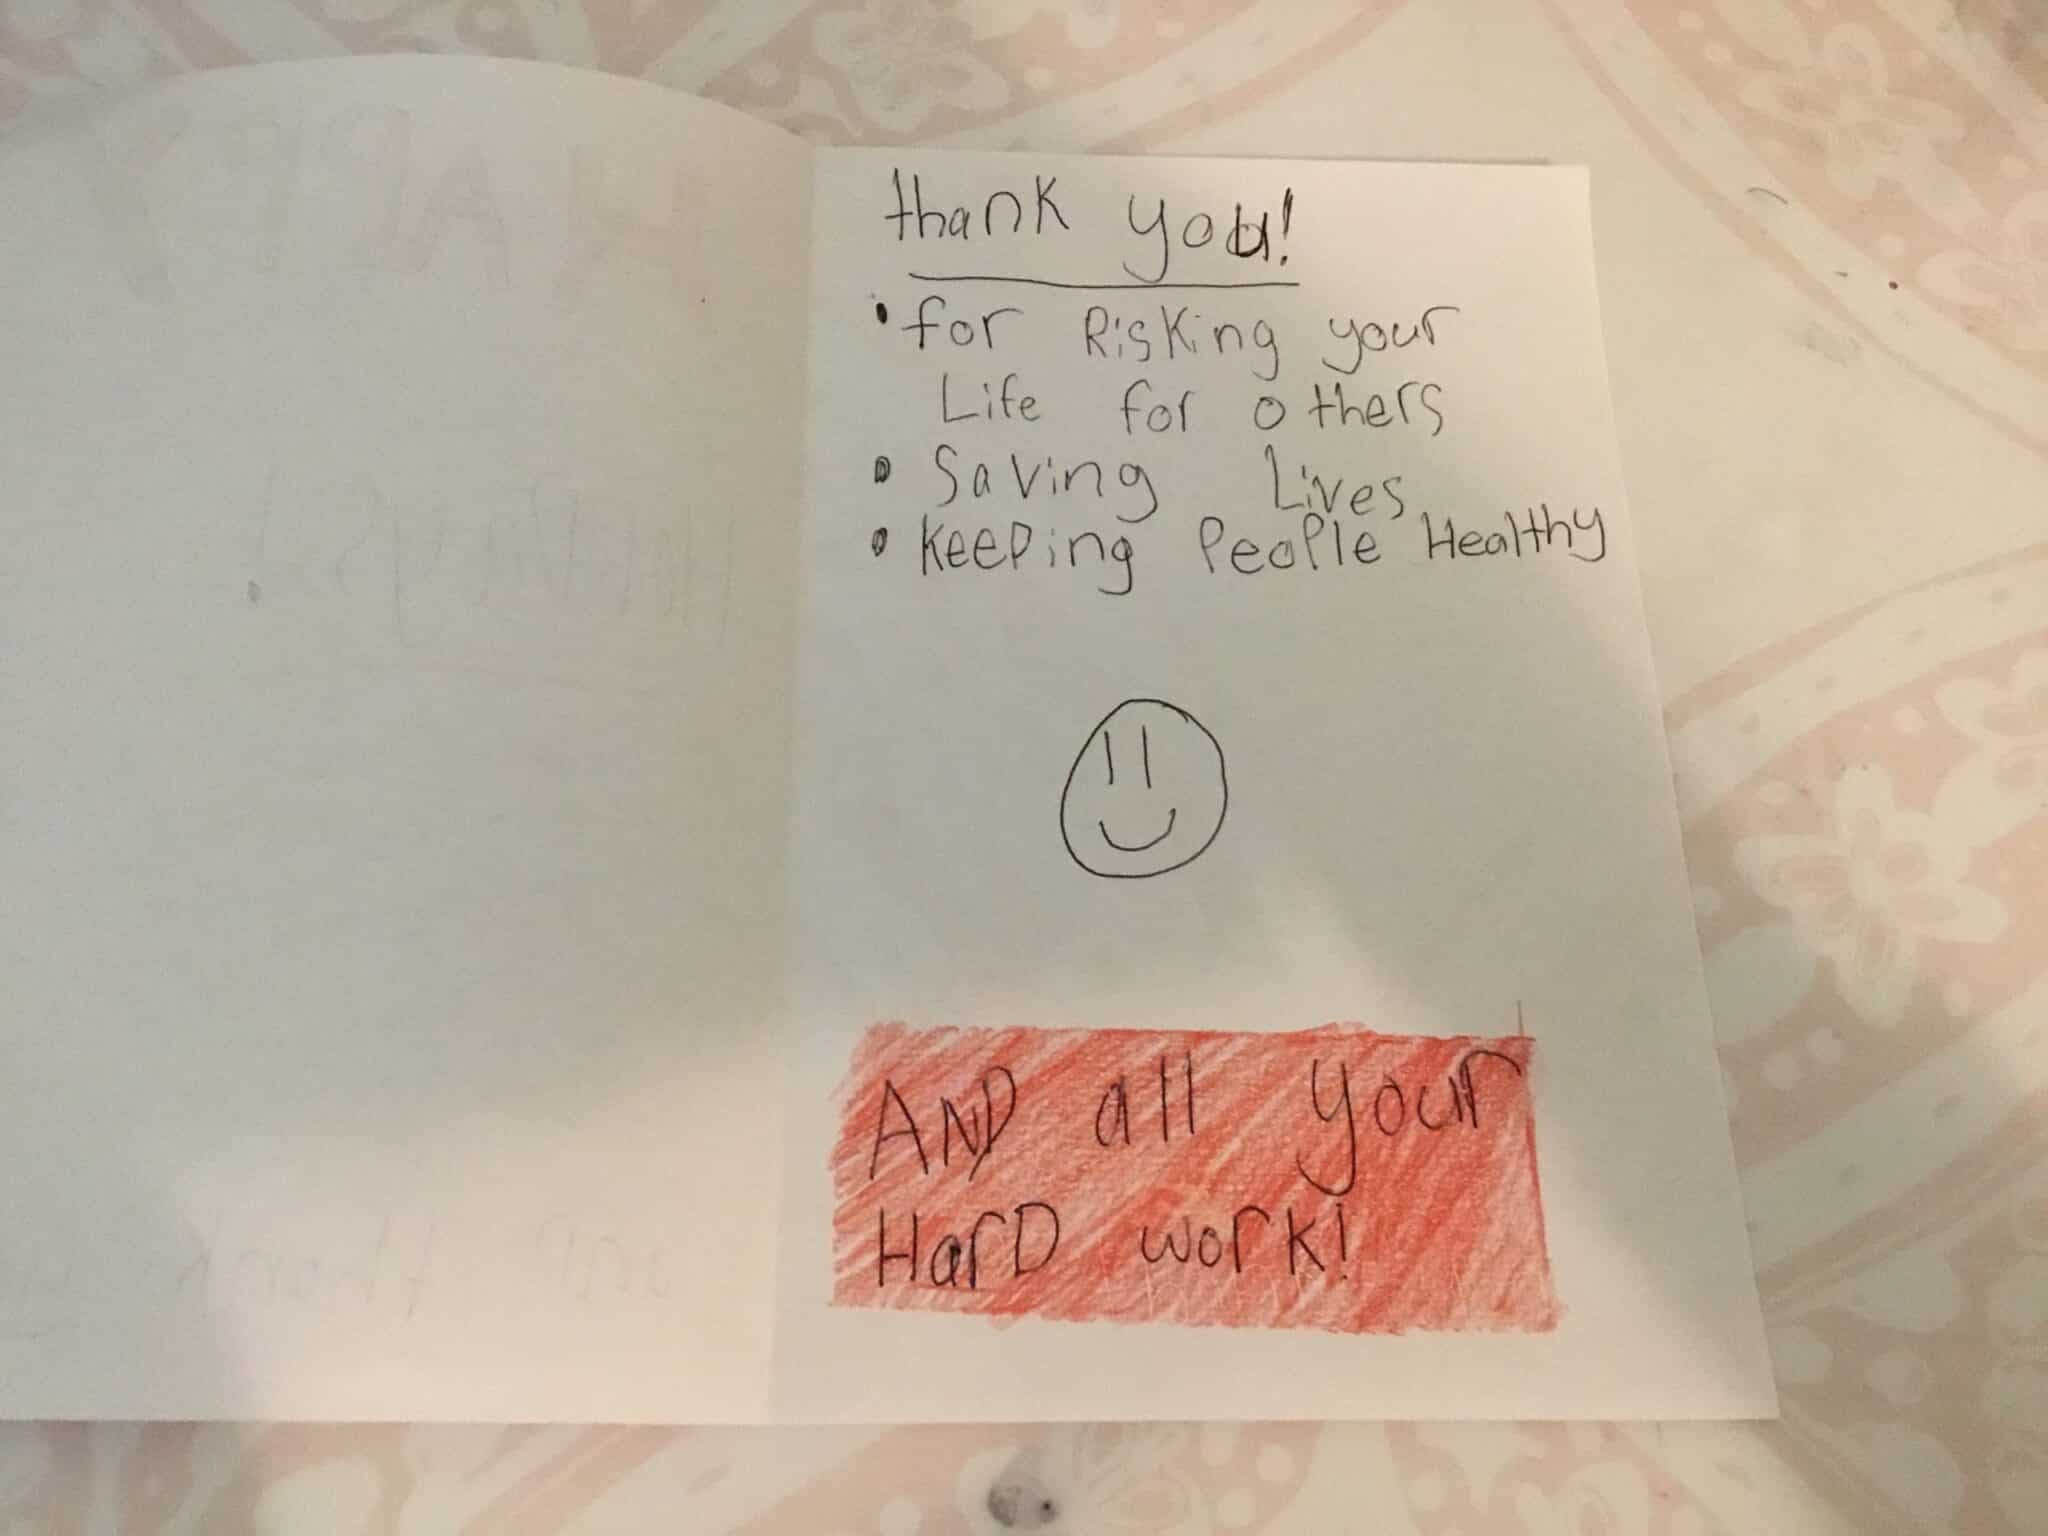 thank you!
• for Risking your
Life for others
• Saving Lives
• Keeping People Healthy
AND all your
HarD work!